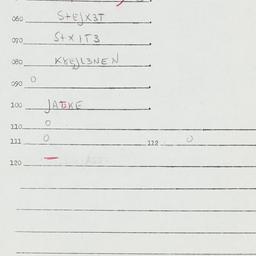 060 StEJX3T
070 StXIT3
080 KXEJL3NEN
090 O
100 JATKE
110 O
111 O 112 O
120